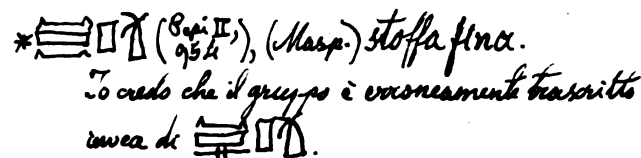 * (Pepi II, 954), (Masp.) stoffa fina.
Io credo che il gruppo è erroneamente trascritto
invece di .